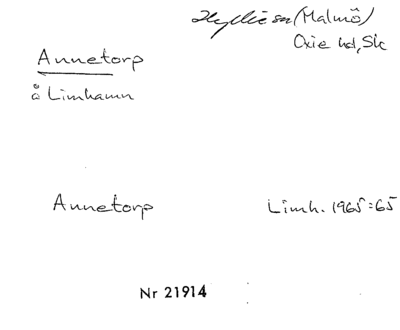 Hyllie sn (Malmö)
Oxie hd, Sk
Annetorp
å Limhamn
Annetorp Limh. 1965:65
Nr 21914